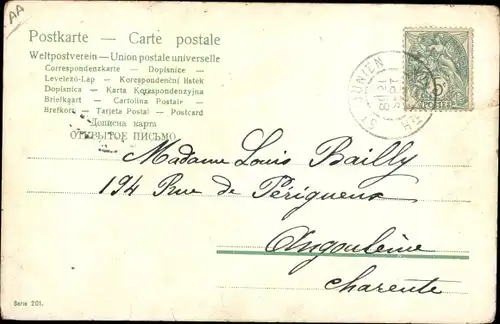 AA
Postkarte — Carte postale
Weltpostverein — Union postale universelle
Correspondenzkarte - Dopisnice -
Levelező-Lap - Korespondenční listek
Dopisnica - Karta Korespondencyjna
Briefkaart - Cartolina Postale -
Brefkort - Tarjeta Postal - Postcard
Дописна карта
ОТКРЫТОЕ ПИСЬМО
ST JUNIEN
5
POSTES
Madame Louis Bailly
194 Rue de Périgueux
Angoulême
Charente
Serie 201.